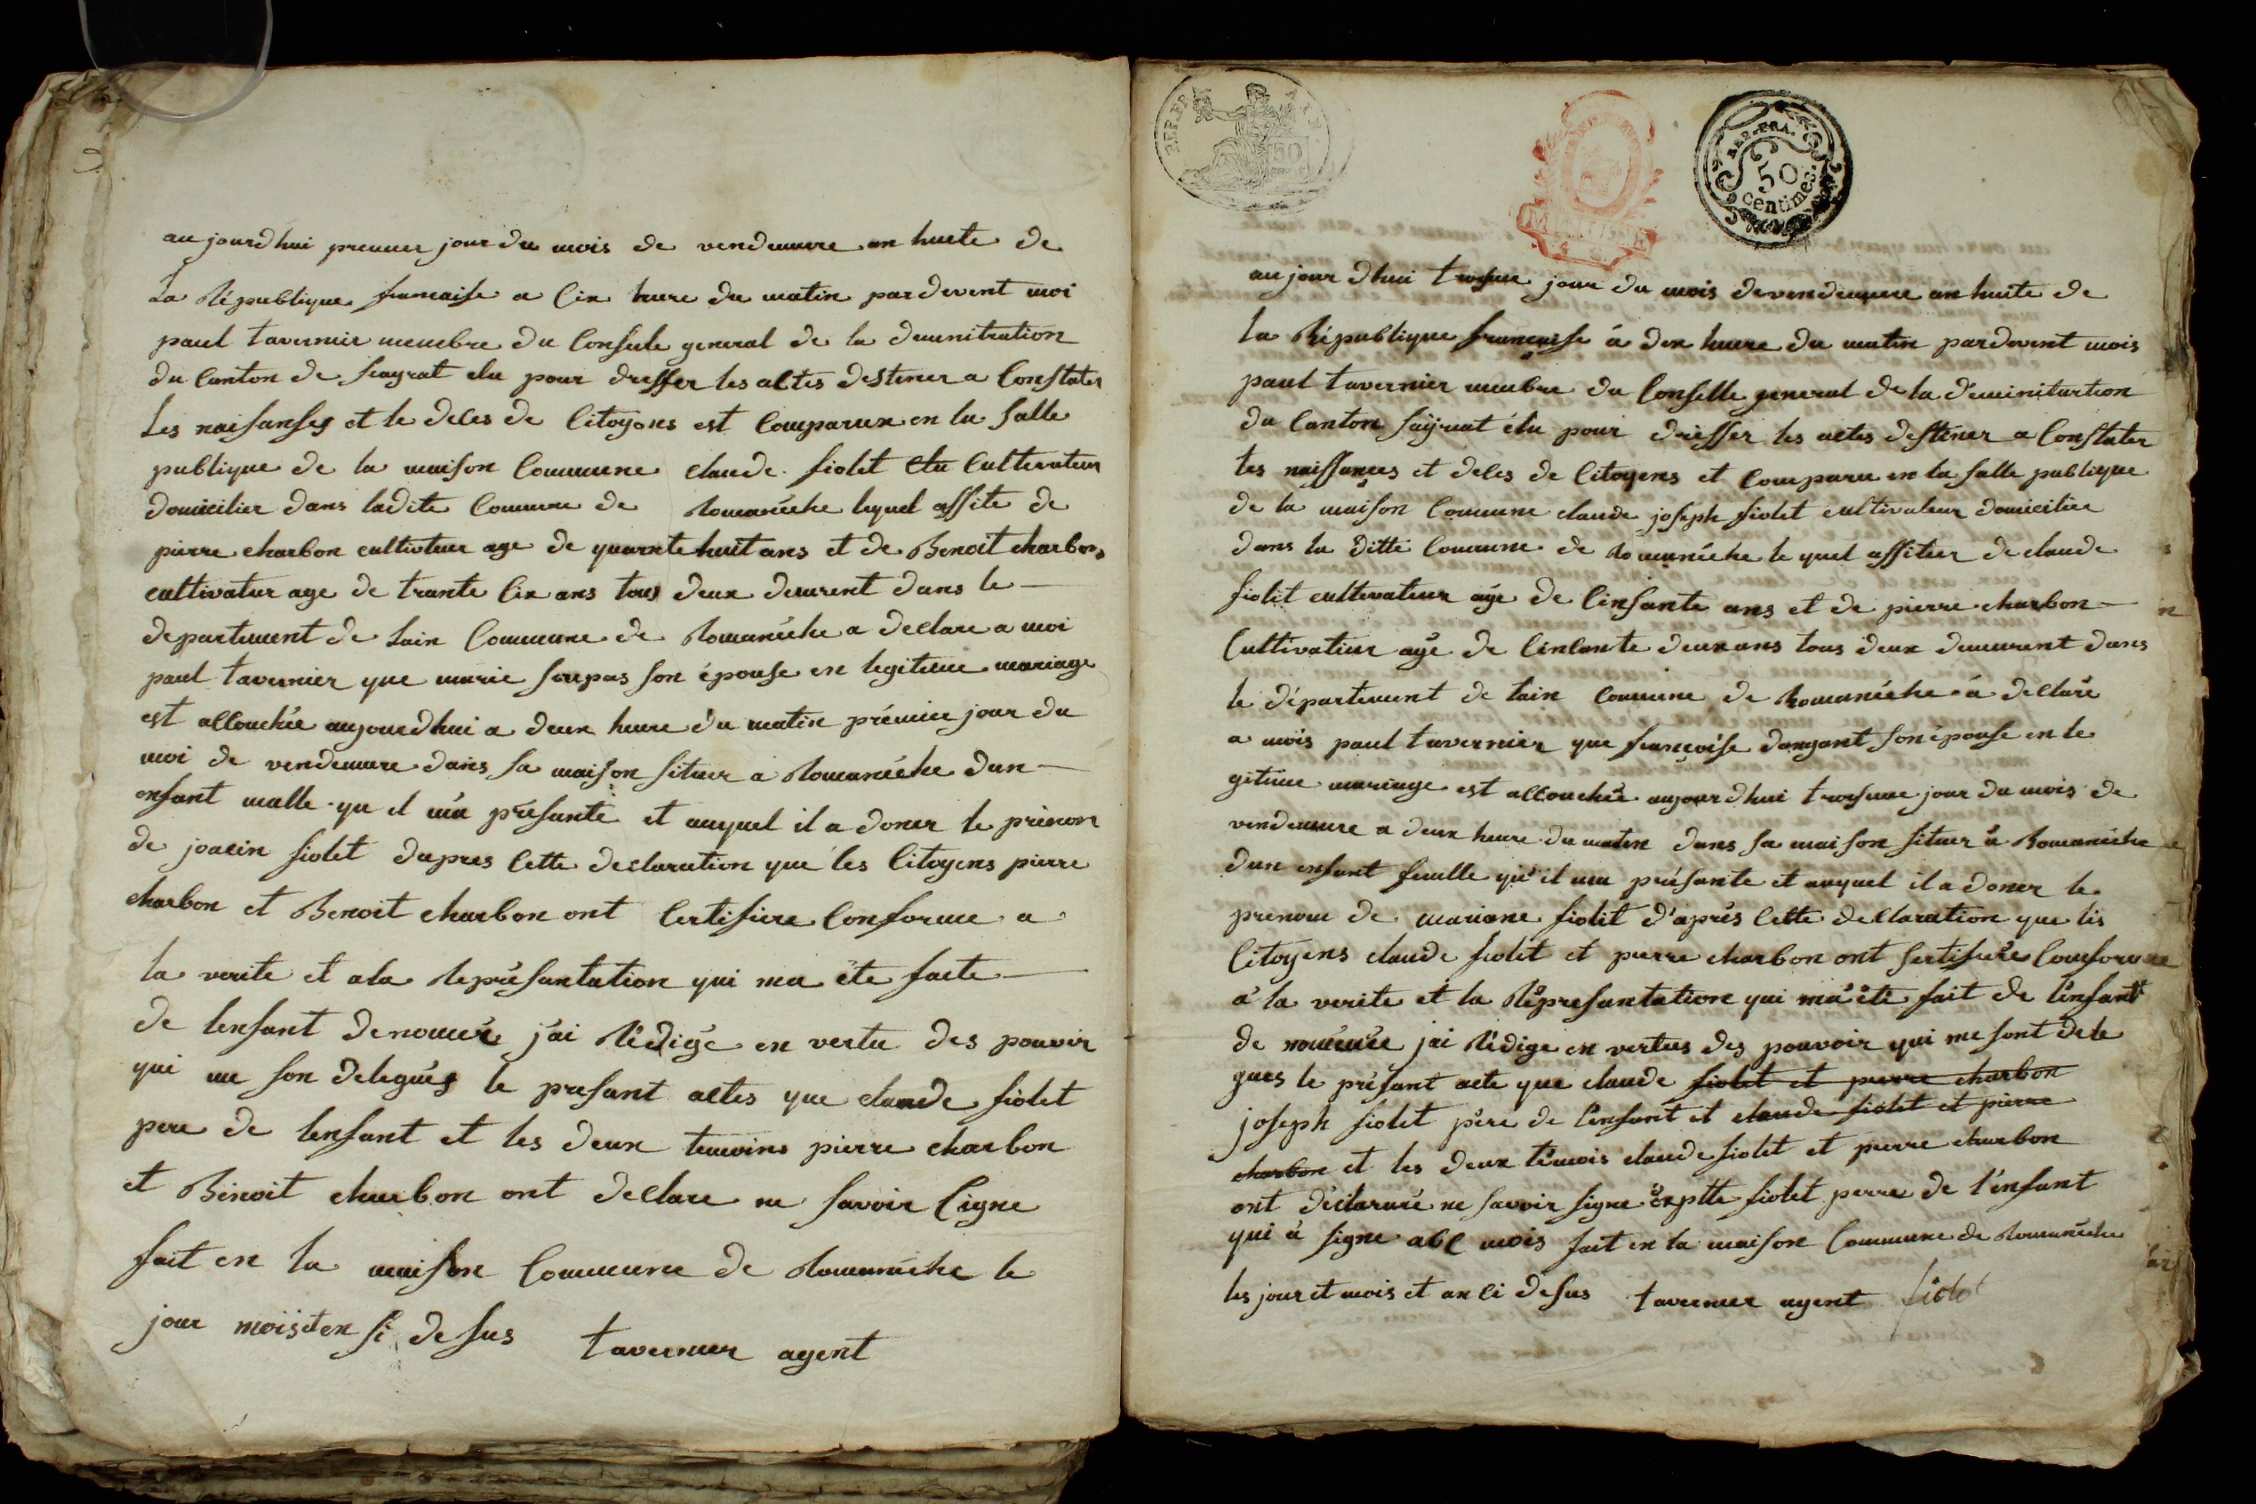 aujourdhui premier jour du mois de vendemiere an huite de
La République francaise a Cix hure du matin pardevent moi
paul tavernier membre du Consule general de la deminitration
du Canton de seayrat elu pour dresser les altes destiner a Constater
Les naisanses et le deces de Citoyons est Comparux en la salle
publique de la maison Commune claude fiolet Cultivateur
domicilier dans ladite Commune de Romanéche lequel assite de
pierre charbon cultivteur age de quarnte huit ans et de Benoit charbon
cultivatur age de trante Cix ans tous deux demurent dans le
departement de Lain Commune de Romanéche a declare a moi
paul tavernier que marie son épouse en legitime mariage
est allouchée aujourdhui a deux hure du matin prémier jour du
moi de vendemure dans sa maison situer a Romanéche dun
enfant malle qu il ma présanté et auquel il a doner le prinon
de joacin fiolet dapres Cette declaration que les Citoyens pierre
charbon et Benoit charbon ont Certifiere Conforme a
la verite et a la Représantation qui ma éte faite
de lenfant denomér j'ai Rédigé en vertu des pouvir
qui me son delegués le presant altes que claude fiolet
pere de lenfant et les deux temoins pierre charbon
et Binoit charbon ont declare ne savoir Cigne
fait en la maison Commune de Romanéche le
jour mois et en si desus tavernier agent
REP. FRA.
50
centimes
au jour dhui troisme jour du mois devendemure an huite de
la République française à dix hure du matin pardevent mois
paul tavernier membre du Conselle general de la déminitartion
du Canton sayrat élu pour dresser les actes destiner a Constater
les naissances et deces de Citoyens et Comparu en la salle publique
de la maison Commune claude joseph fiolet cultivateur domicilier
dans la ditte Commune de Romanéche le quel assiter de claude
fiolit cultivateur âgé de Cinsante ans et de pierre charbon
Cultivatiur agé de Cinconte deux ans tous deux demeurent dans
le département de lain Commune de Romanéche à declare
a mois paul tavernier que françoise dangant son épouse en le
gitime mariage est allouchée aujourdhui troisme jour du mois de
vendemure a deux hure du maten dans sa maison situer à Romanéche
dun enfant femelle qu'il ma présante et auquel il a doner le
prenom de mariane fiolit d'après Cette declaration que lis
Citoyens claude fiolit et pierre charbon ont sertifiere Comforme
à la verite et la Représantation qui ma été fait de lénfant
de nomémée jai Rédige en vertus des pouvoir qui me sont dele
gues le présant acte que claude fiolet et pierre charbon
joseph fiolet père de l'enfant et claude fiolet et pierre
charbon et les deux témois claude fiolet et pierre charbon
ont déclararé ne savoir signe exptte fiolet perre de l'énfant
qui à signe abe mois fait en la maison Commune de Romanéche
les jour et mois et an ci desus tavernier agent fiolet